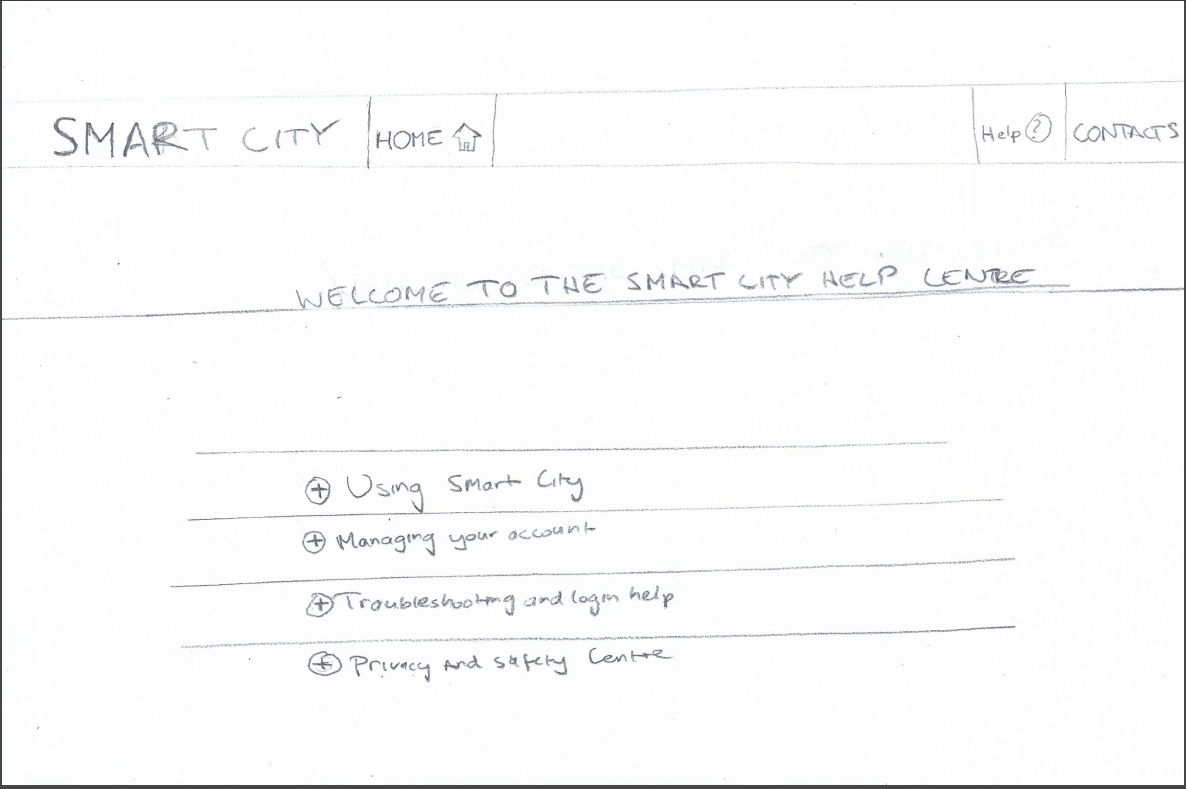 SMART CITY HOME Help ? CONTACTS
WELCOME TO THE SMART CITY HELP CENTRE
Using Smart City
Managing your account
Troubleshooting and login help
Privacy And safety Centre